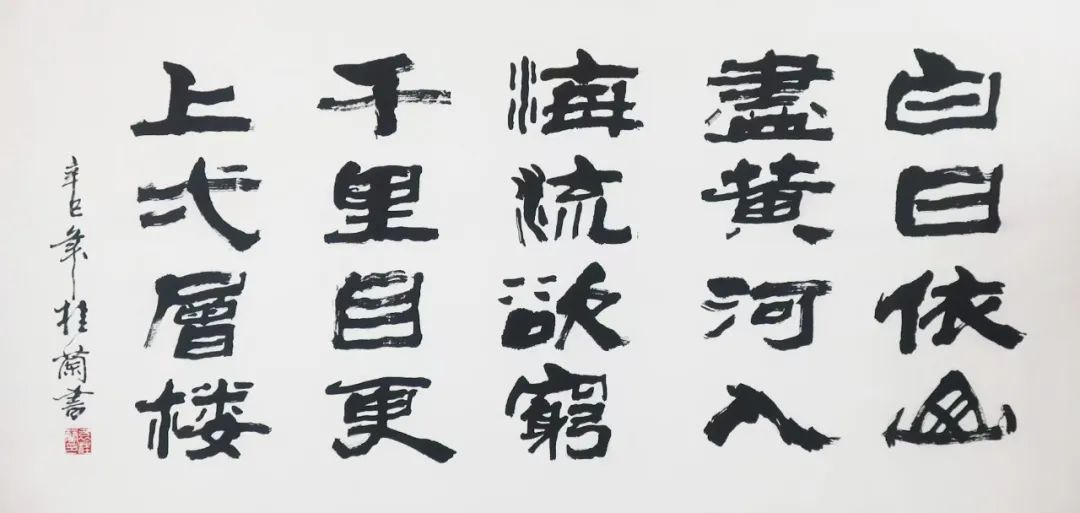 白日依山
盡黄河入
海流欲窮
千里目更
上弌層楼
辛巳年桂蘭書